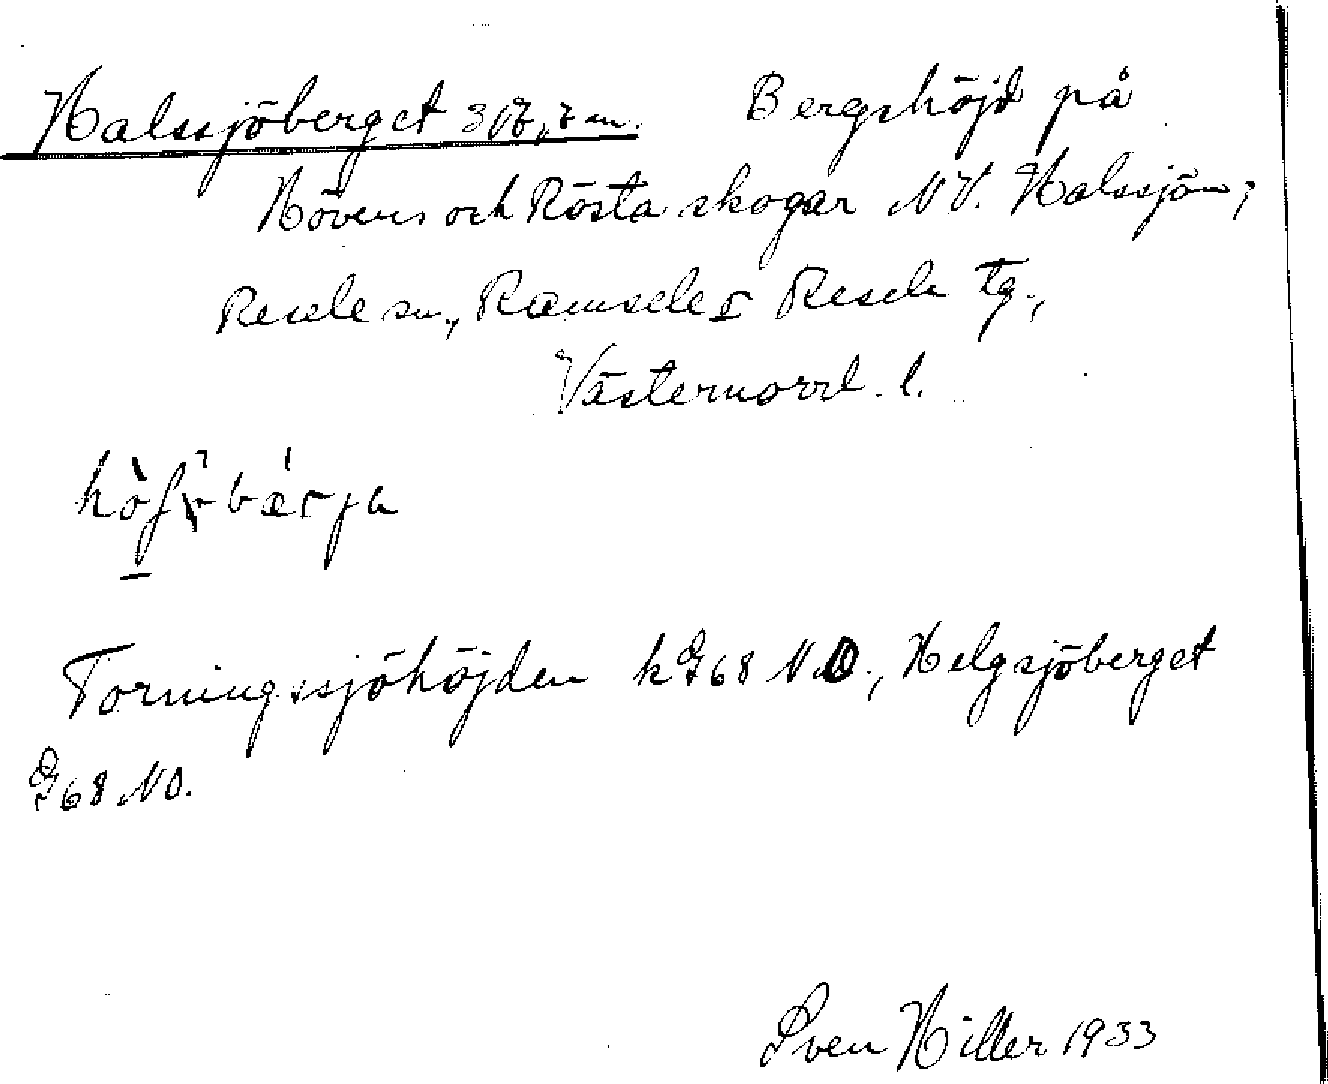 Halssjöberget 317,7 m. Bergshöjd på
Hövens och Rösta skogar NV. Halssjön;
Resele sn., Ramsele o Resele tg.,
Västernorrl. l.
Torningssjöhöjden k G68 NO., Helgsjöberget
G68 NO.
Sven Hiller 1933